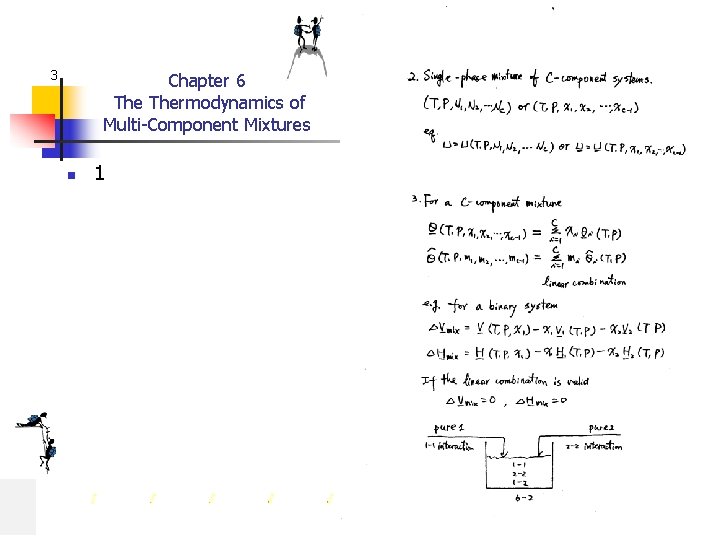 3
Chapter 6
The Thermodynamics of
Multi-Component Mixtures
1
2. Single-phase mixture of C-component systems.
(T, P, N₁, N₂, ⋯ N_C) or (T, P, x₁, x₂, ⋯, x_{C-1})
eg.
U = U(T, P, N₁, N₂, ⋯ N_C) or U̲ = U̲(T, P, x₁, x₂, ⋯, x_{C-1})
3. For a C-component mixture
θ̲(T, P, x₁, x₂, ⋯, x_{C-1}) = Σ_{i=1}^{C} x_i θ̲_i (T, P)
θ̂(T, P, m₁, m₂, ⋯, m_{C-1}) = Σ_{i=1}^{C} m_i θ̂_i (T, P)
linear combination
e.g. for a binary system
ΔV̲mix = V̲ (T, P, x₁) - x₁V̲₁ (T, P) - x₂V̲₂ (T P)
ΔH̲mix = H̲ (T, P, x₁) - x₁H̲₁ (T, P) - x₂H̲₂ (T, P)
If the linear combination is valid
ΔV̲mix = 0 , ΔH̲mix = 0
pure 1 pure 2
1-1 interaction 2-2 interaction
1-1
2-2
1-2
6-2